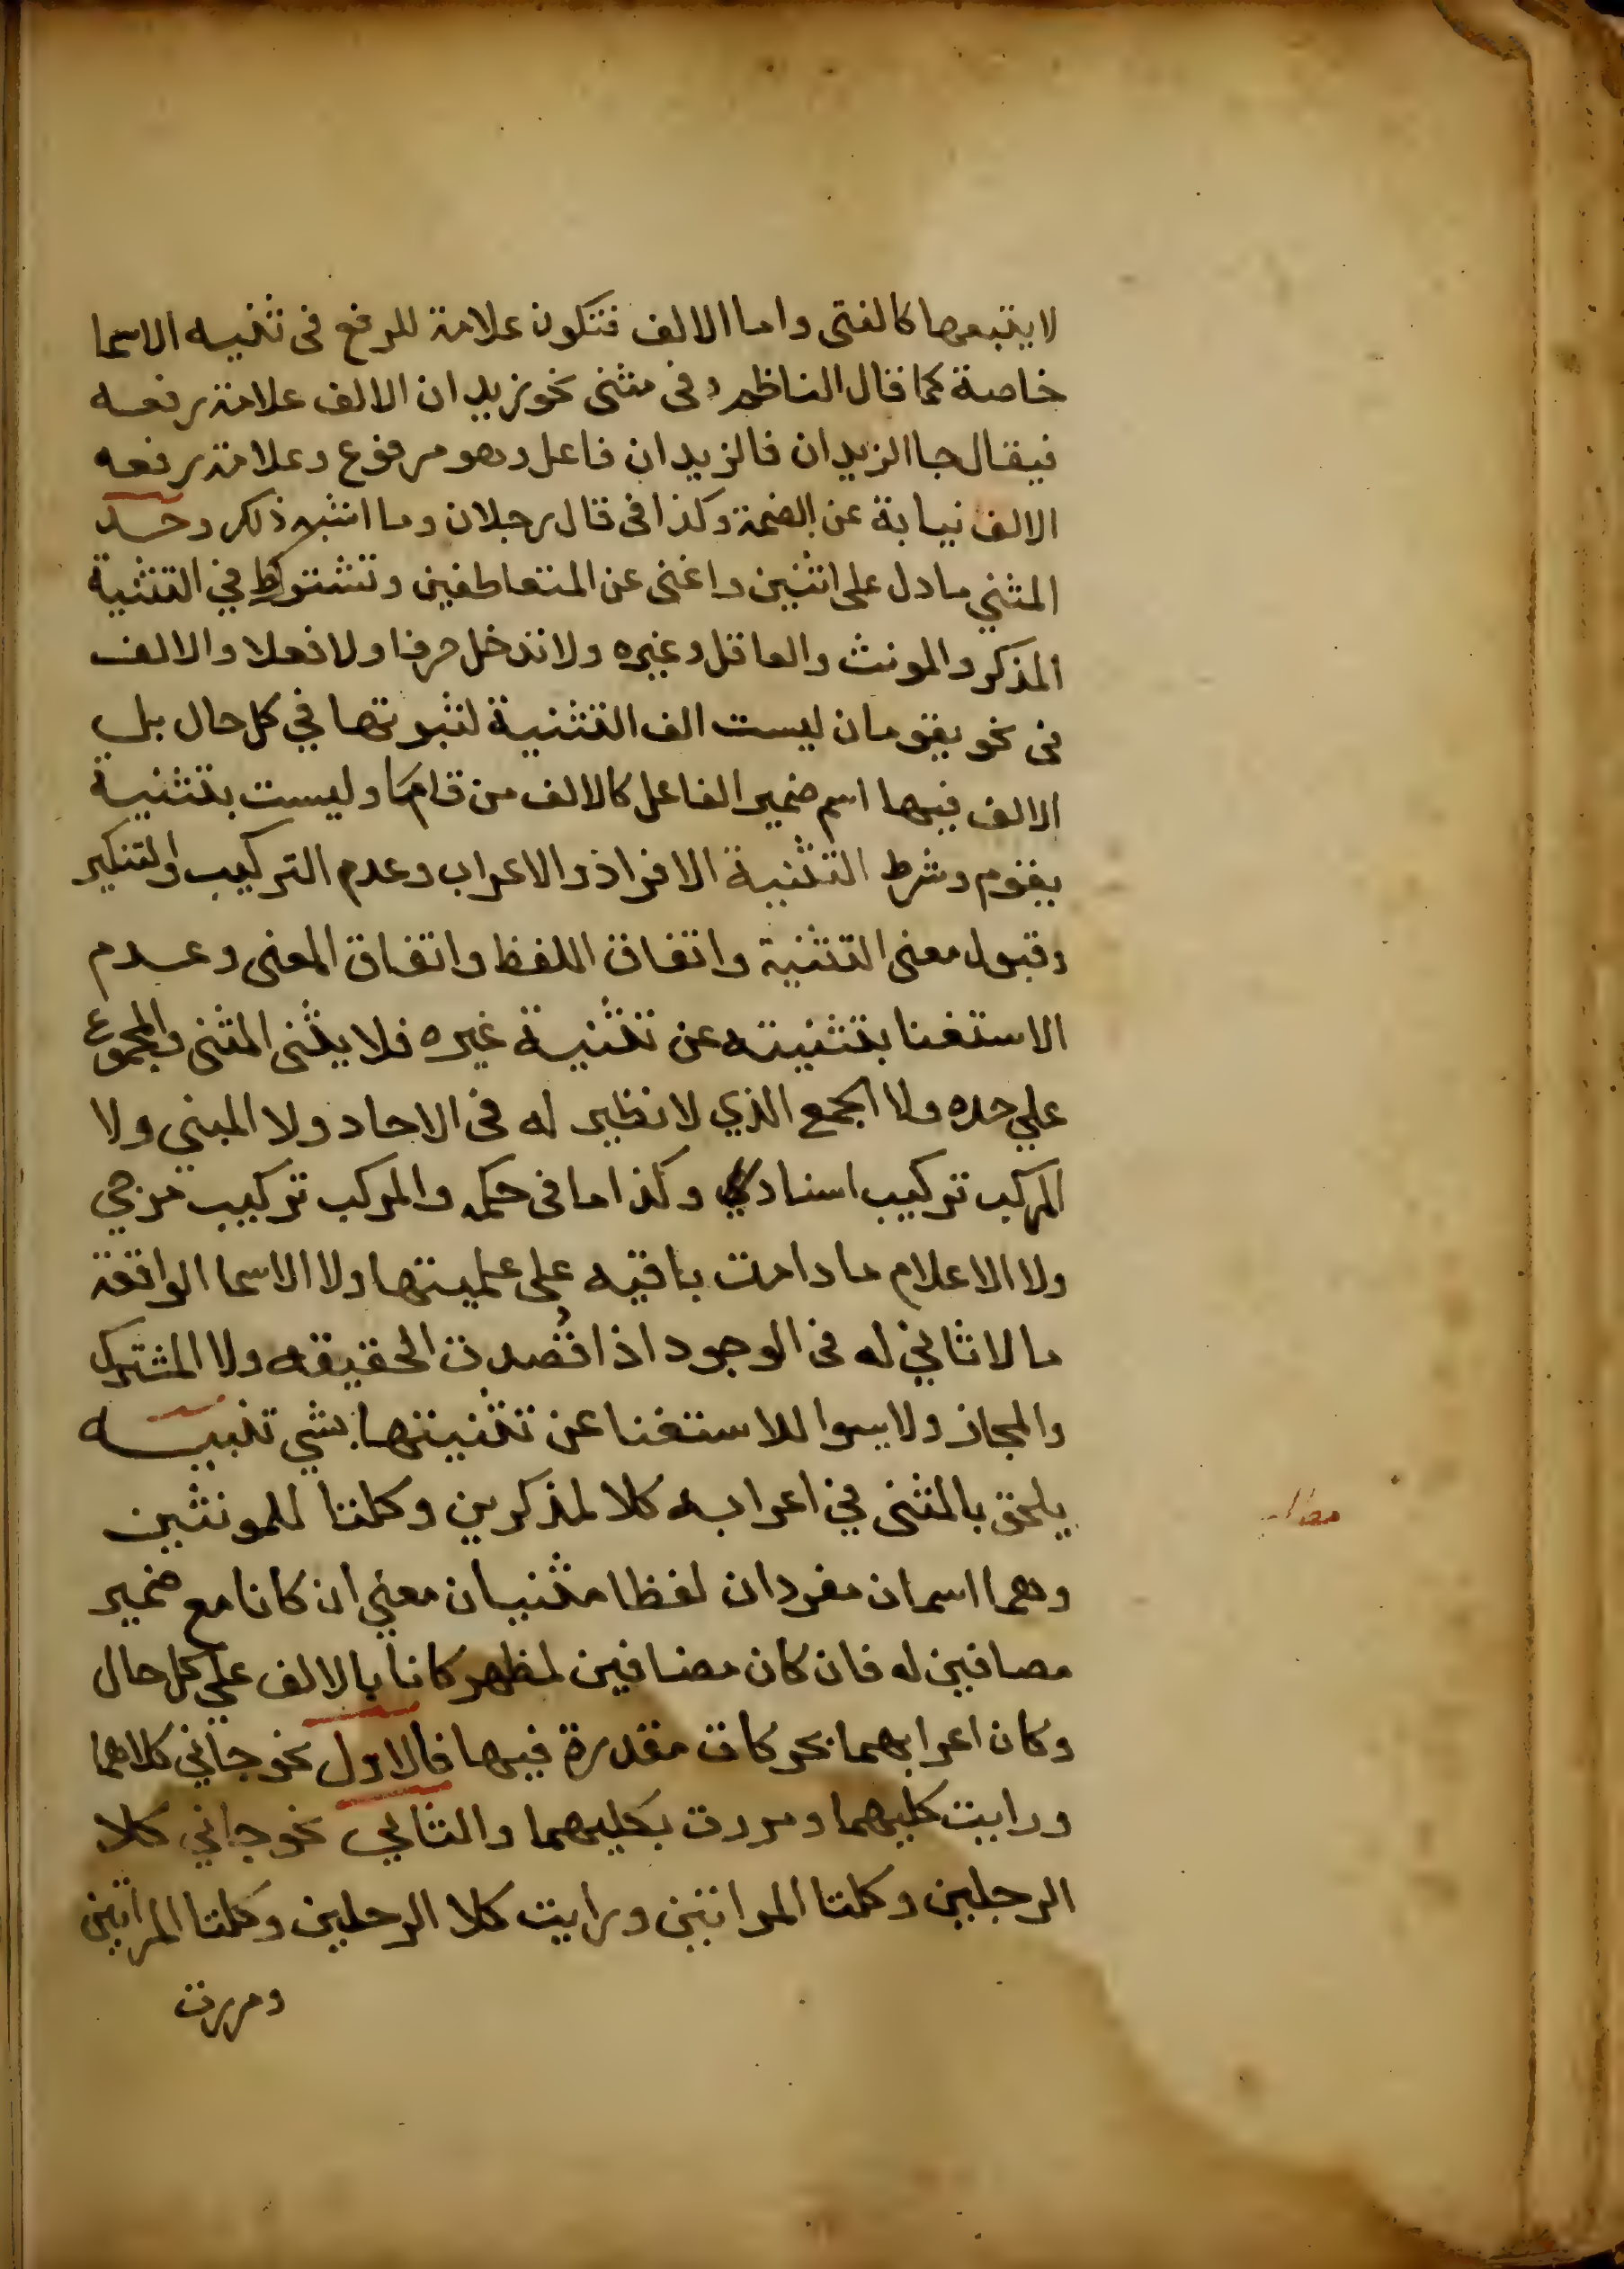 لا يتبعها كالفتى واما الالف فتكون علامة للرفع فى تثنيه الاسما
خاصة كما قال الناظم وفى مثنى نحو زيدان الالف علامة رفعه
فيقال جا الزيدان فالزيدان فاعل وهو مرفوع وعلامة رفعه
الالف نيابة عن الضمة وكذا فى قال رجلان وما اشبه ذلك وحد
المثني ما دل على اثنين واغنى عن المتعاطفين وتشترط في التثنية
المذكر والمونث والعاقل وغيره ولا تدخل حرفا ولا فعلا والالف
فى نحو يقومان ليست الف التثنية لثبوتها في كل حال بل
الالف فيها اسم ضمير الفاعل كالالف من قاما وليست بتثنية
يقوم وشرط التثنية الافراد والاعراب وعدم التركيب والتنكير
وقبول معنى التثنية واتفاق اللفظ واتفاق المعنى وعدم
الاستغنا بتثنيته عن تثنية غيره فلا يثنى المثنى والمجموع
علي حده ولا الجمع الذي لا نظير له فى الاحاد ولا المبني ولا
المركب تركيب اسنادي وكذا ما فى حكمه والمركب تركيب مزجي
ولا الاعلام ما دامت باقيه على علميتها ولا الاسما الواقعة
ما لا ثاني له فى الوجود اذا قُصدت الحقيقه ولا المشترك
والمجاز ولا سوا للاستغنا عن تثنيتها بشي تنبيه
يلحق بالمثنى في اعرابه كلا لمذكرين وكلتا للمونثين
وهما اسمان مفردان لفظا مثنيان معني ان كانا مع ضمير
مصافين له فان كان مضافين لمظهر كانا بالالف علي كل حال
وكان اعرابهما بحركات مقدرة فيها فالاول نحو جاني كلاهما
ورايت كليهما ومررت بكليهما والثاني نحو جاني كلا
الرجلين وكلتا المراتين ورايت كلا الرجلين وكلتا المراتين
ومررت